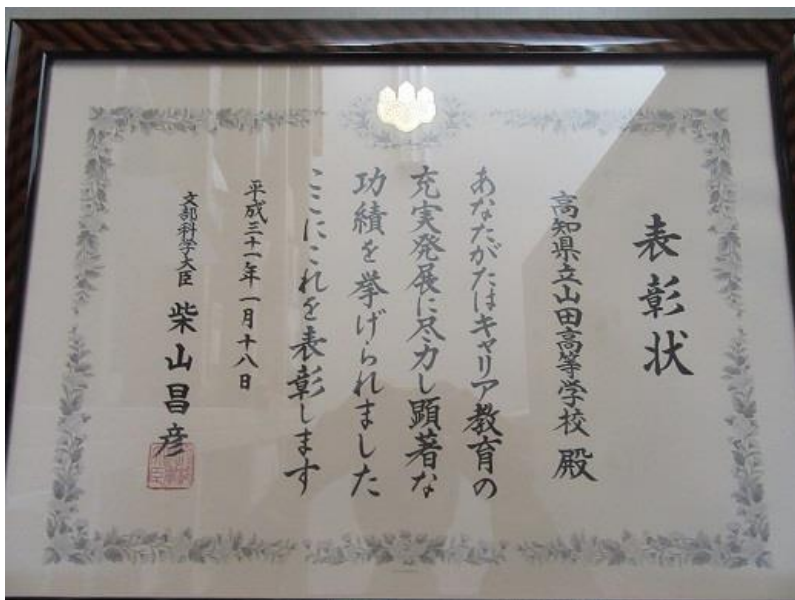 表彰状
高知県立山田高等学校 殿
あなたがたはキャリア教育の
充実発展に尽力し顕著な
功績を挙げられました
ここにこれを表彰します
平成三十一年一月十八日
文部科学大臣 柴山昌彦